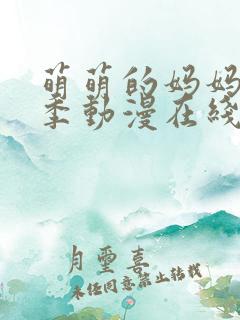 萌萌的妈妈
季動漫在綫
月璽喜
未经同意禁止转载